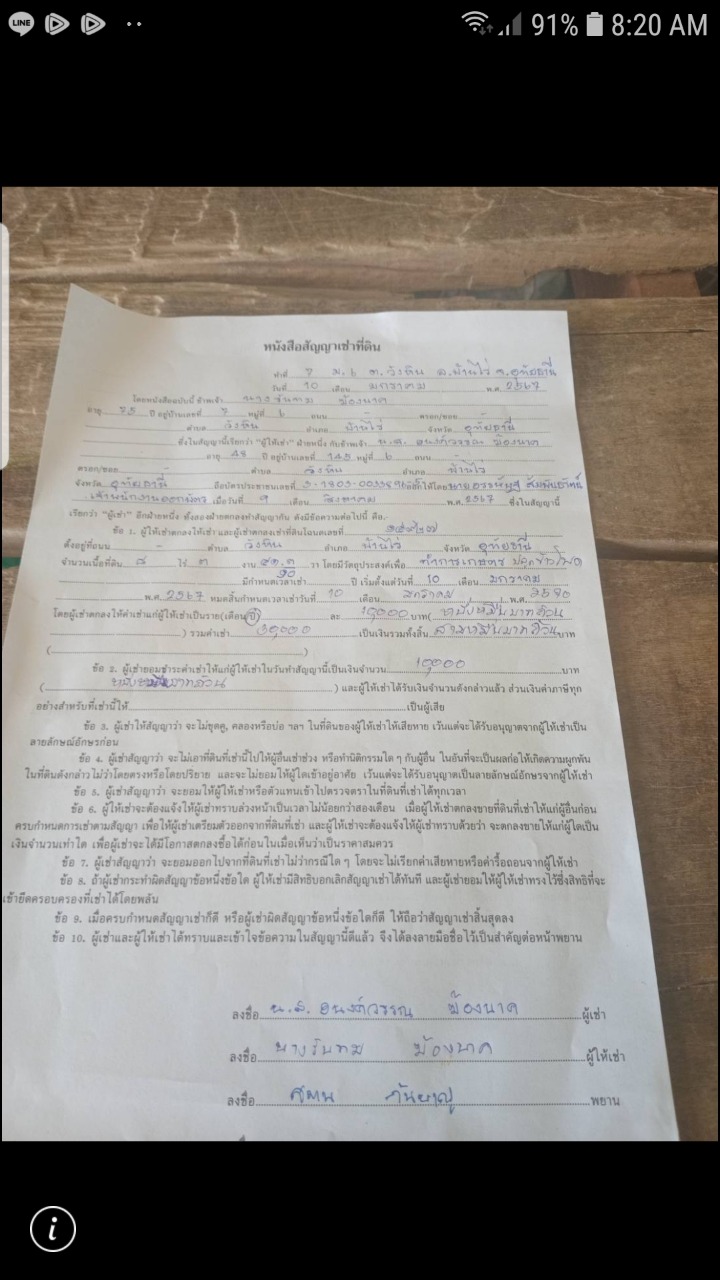 LINE
91% 8:20 AM
หนังสือสัญญาเช่าที่ดิน
ทำที่ 7 ม.๖ ต.วังหิน อ.บ้านไร่ จ.อุทัยธานี
วันที่ 10 เดือน มกราคม พ.ศ. 2567
โดยหนังสือฉบับนี้ ข้าพเจ้า นาง ฆ้องนาค
อายุ 75 ปี อยู่บ้านเลขที่ 7 หมู่ที่ ๖ ถนน - ตรอก/ซอย -
ตำบล วังหิน อำเภอ บ้านไร่ จังหวัด อุทัยธานี
ซึ่งในสัญญานี้เรียกว่า "ผู้ให้เช่า" ฝ่ายหนึ่ง กับข้าพเจ้า น.ส. อนงค์วรรณ ฆ้องนาค
อายุ 48 ปี อยู่บ้านเลขที่ 145 หมู่ที่ ๖ ถนน -
ตรอก/ซอย - ตำบล วังหิน อำเภอ บ้านไร่
จังหวัด อุทัยธานี ถือบัตรประชาชนเลขที่ ออกให้โดย นาย
เจ้าพนักงานออกบัตร เมื่อวันที่ 9 เดือน สิงหาคม พ.ศ. 2567 ซึ่งในสัญญานี้
เรียกว่า "ผู้เช่า" อีกฝ่ายหนึ่ง ทั้งสองฝ่ายตกลงทำสัญญากัน ดังมีข้อความต่อไปนี้ คือ.-
ข้อ 1. ผู้ให้เช่าตกลงให้เช่า และผู้เช่าตกลงเช่าที่ดินโฉนดเลขที่
ตั้งอยู่ที่ถนน - ตำบล วังหิน อำเภอ บ้านไร่ จังหวัด อุทัยธานี
จำนวนเนื้อที่ดิน ๘ ไร่ ๓ งาน วา โดยมีวัตถุประสงค์เพื่อ ทำการเกษตร ปลูกข้าวโพด
มีกำหนดเวลาเช่า ปี เริ่มตั้งแต่วันที่ 10 เดือน มกราคม
พ.ศ. 2567 หมดสิ้นกำหนดเวลาเช่าวันที่ 10 เดือน มกราคม พ.ศ. 2570
โดยผู้เช่าตกลงให้ค่าเช่าแก่ผู้ให้เช่าเป็นราย(เดือน/ปี) ละ 10,000 บาท( หนึ่งหมื่นบาทถ้วน
) รวมค่าเช่า 30,000 เป็นเงินรวมทั้งสิ้น สามหมื่นบาทถ้วน บาท
( )
ข้อ 2. ผู้เช่ายอมชำระค่าเช่าให้แก่ผู้ให้เช่าในวันทำสัญญานี้เป็นเงินจำนวน 10,000 บาท
( หนึ่งหมื่นบาทถ้วน ) และผู้ให้เช่าได้รับเงินจำนวนดังกล่าวแล้ว ส่วนเงินค่าภาษีทุก
อย่างสำหรับที่เช่านี้ให้ เป็นผู้เสีย
ข้อ 3. ผู้เช่าให้สัญญาว่า จะไม่ขุดคู, คลองหรือบ่อ ฯลฯ ในที่ดินของผู้ให้เช่าให้เสียหาย เว้นแต่จะได้รับอนุญาตจากผู้ให้เช่าเป็น
ลายลักษณ์อักษรก่อน
ข้อ 4. ผู้เช่าสัญญาว่า จะไม่เอาที่ดินที่เช่านี้ไปให้ผู้อื่นเช่าช่วง หรือทำนิติกรรมใด ๆ กับผู้อื่น ในอันที่จะเป็นผลก่อให้เกิดความผูกพัน
ในที่ดินดังกล่าว ไม่ว่าโดยตรงหรือโดยปริยาย และจะไม่ยอมให้ผู้ใดเข้าอยู่อาศัย เว้นแต่จะได้รับอนุญาตเป็นลายลักษณ์อักษรจากผู้ให้เช่า
ข้อ 5. ผู้เช่าสัญญาว่า จะยอมให้ผู้ให้เช่าหรือตัวแทนเข้าไปตรวจตราในที่ดินที่เช่าได้ทุกเวลา
ข้อ 6. ผู้ให้เช่าจะต้องแจ้งให้ผู้เช่าทราบล่วงหน้าเป็นเวลาไม่น้อยกว่าสองเดือน เมื่อผู้ให้เช่าตกลงขายที่ดินที่เช่าให้แก่ผู้อื่นก่อน
ครบกำหนดการเช่าตามสัญญา เพื่อให้ผู้เช่าเตรียมตัวออกจากที่ดินที่เช่า และผู้ให้เช่าจะต้องแจ้งให้ผู้เช่าทราบด้วยว่า จะตกลงขายให้แก่ผู้ใดเป็น
เงินจำนวนเท่าใด เพื่อผู้เช่าจะได้มีโอกาสตกลงซื้อได้ก่อนในเมื่อเห็นว่าเป็นราคาสมควร
ข้อ 7. ผู้เช่าสัญญาว่า จะยอมออกไปจากที่ดินที่เช่าไม่ว่ากรณีใด ๆ โดยจะไม่เรียกค่าเสียหายหรือค่ารื้อถอนจากผู้ให้เช่า
ข้อ 8. ถ้าผู้เช่ากระทำผิดสัญญาข้อหนึ่งข้อใด ผู้ให้เช่ามีสิทธิบอกเลิกสัญญาเช่าได้ทันที และผู้เช่ายอมให้ผู้ให้เช่าทรงไว้ซึ่งสิทธิที่จะ
เข้ายึดครอบครองที่เช่าได้โดยพลัน
ข้อ 9. เมื่อครบกำหนดสัญญาเช่าก็ดี หรือผู้เช่าผิดสัญญาข้อหนึ่งข้อใดก็ดี ให้ถือว่าสัญญาเช่าสิ้นสุดลง
ข้อ 10. ผู้เช่าและผู้ให้เช่าได้ทราบและเข้าใจข้อความในสัญญานี้ดีแล้ว จึงได้ลงลายมือชื่อไว้เป็นสำคัญต่อหน้าพยาน
ลงชื่อ น.ส. อนงค์วรรณ ฆ้องนาค ผู้เช่า
ลงชื่อ นาง ฆ้องนาค ผู้ให้เช่า
ลงชื่อ พยาน